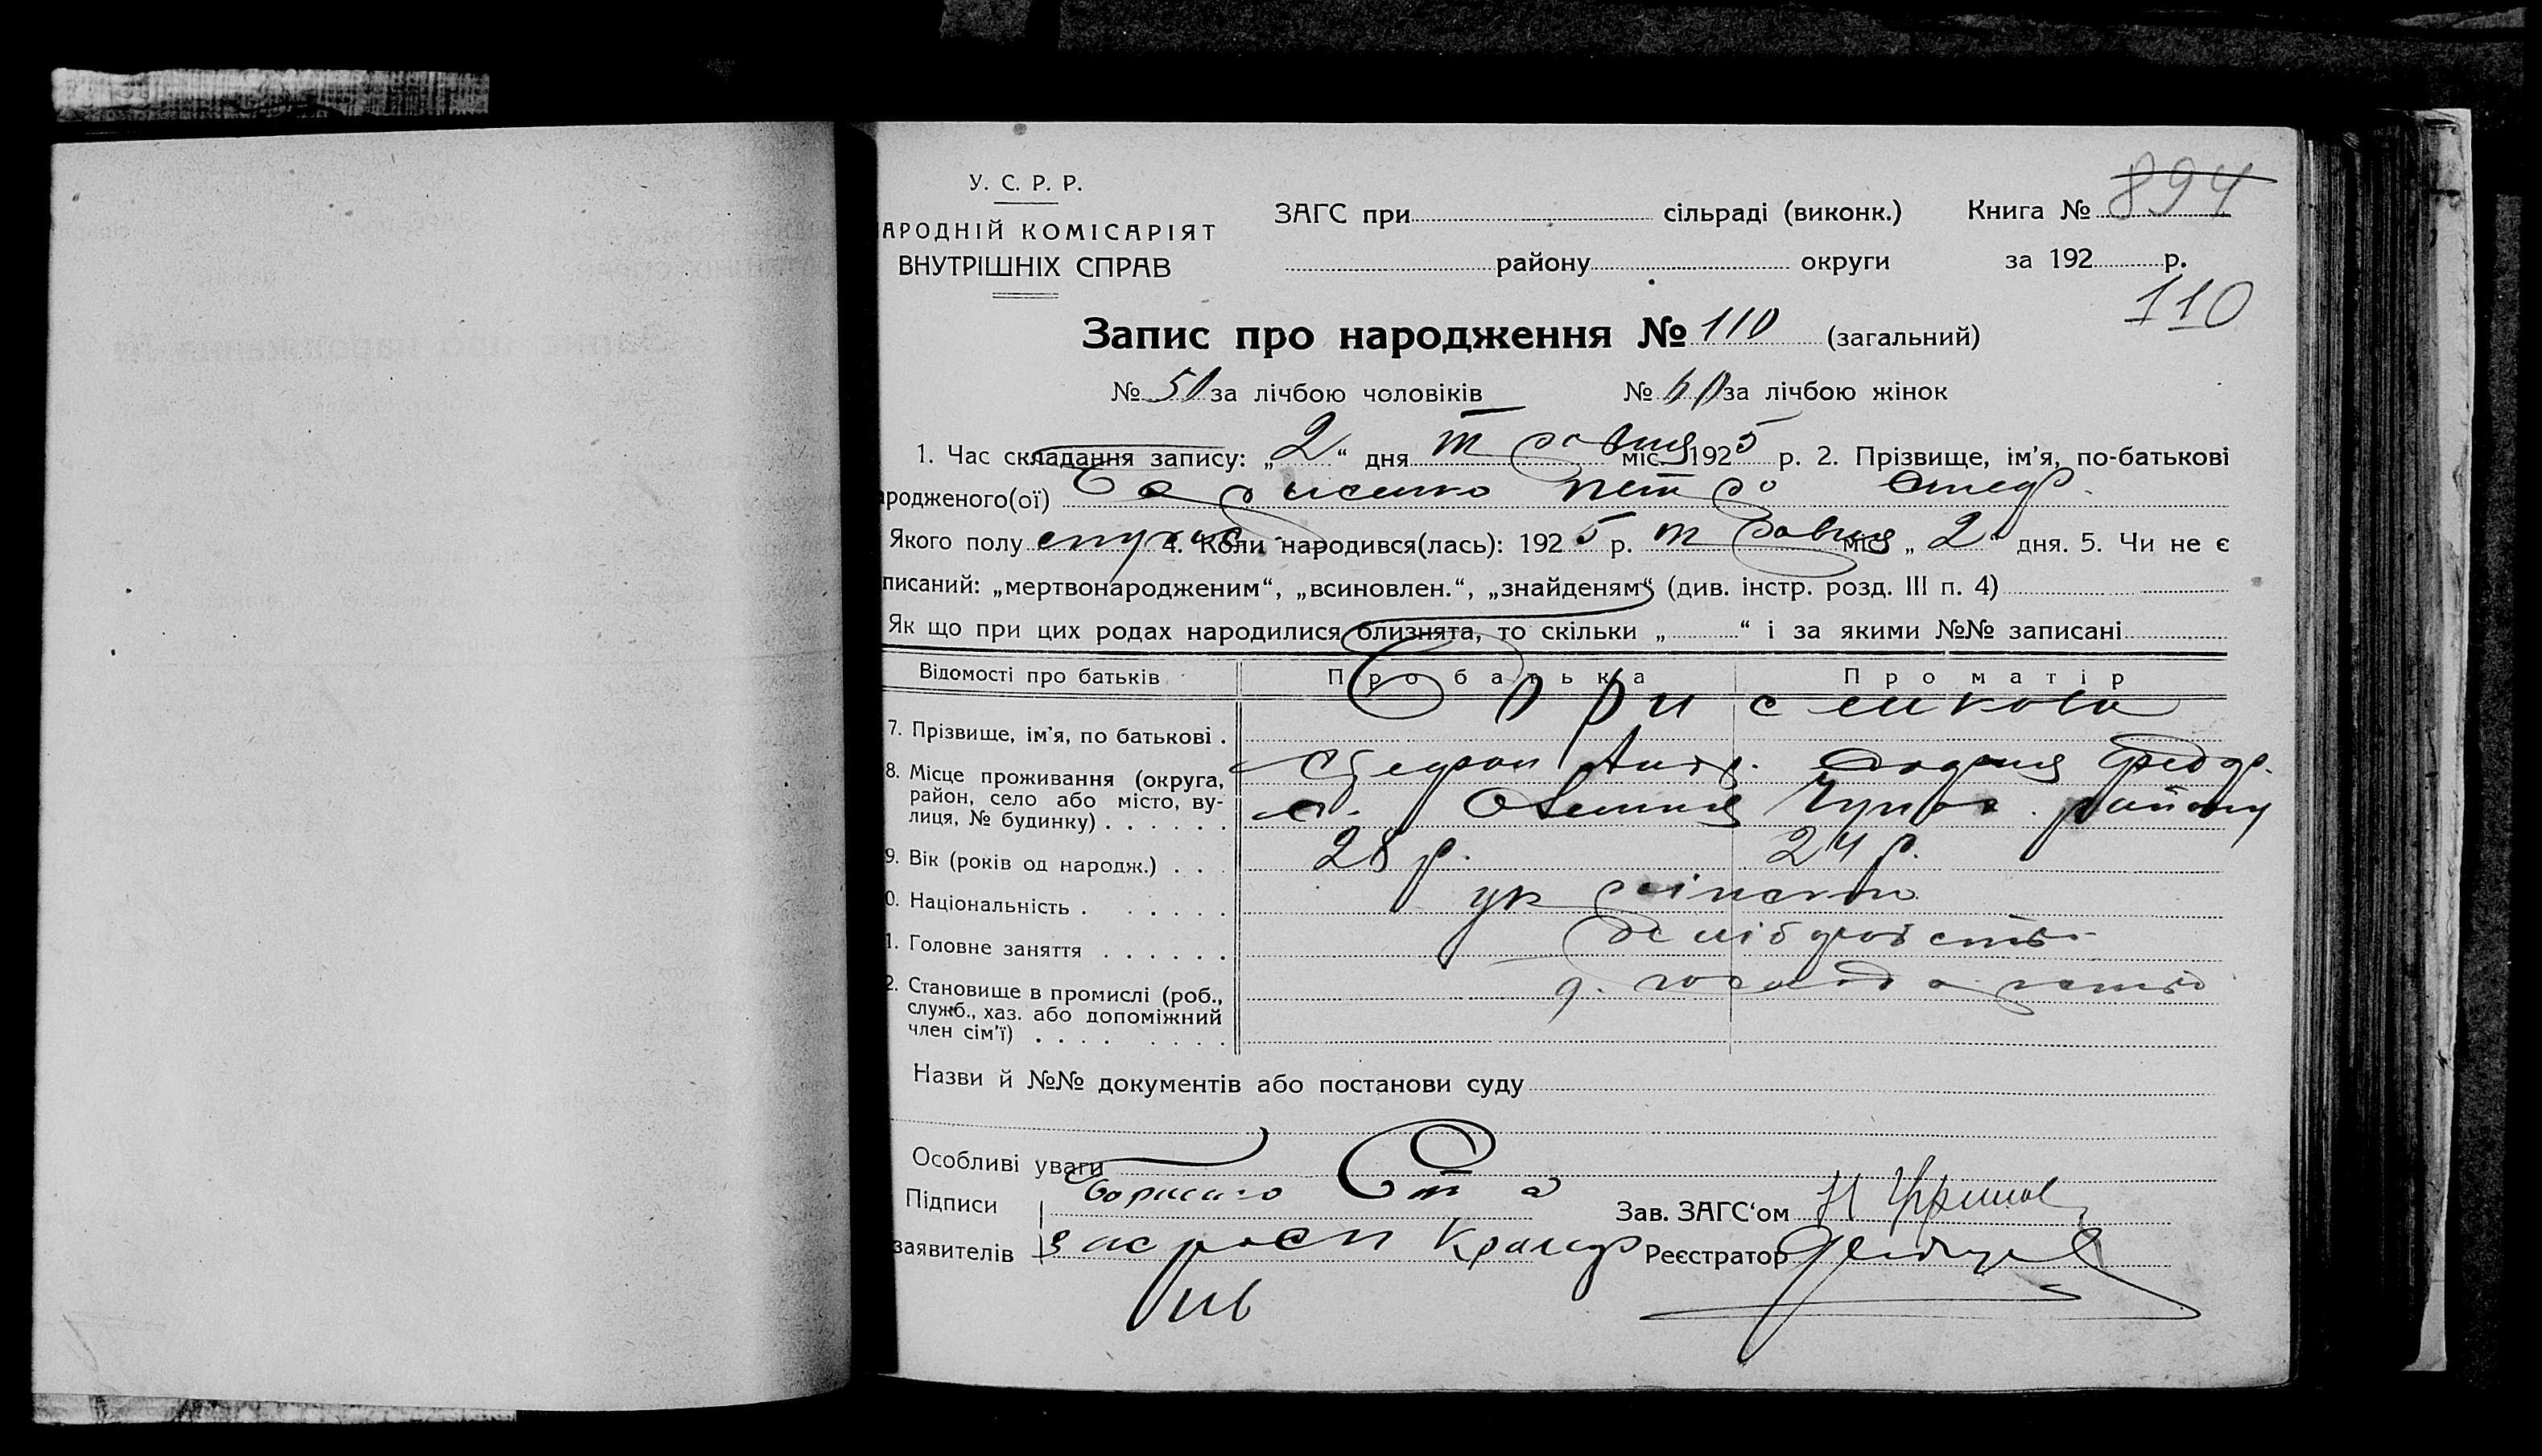 894
У. С. Р. Р.
АРОДНІЙ КОМІСАРІЯТ
ВНУТРІШНІХ СПРАВ
ЗАГС при сільраді (виконк.) Книга №
району округи за 192 р.
110
Запис про народження № 110 (загальний)
№ 50 за лічбою чоловіків № 60 за лічбою жінок
1. Час складання запису: „2“ дня травня міс. 1925 р. 2. Прізвище, ім’я, по-батькові
родженого(ої) Борисенко Петро Стеф.
Якого полу 4. Коли народився(лась): 1925 р. травня міс „2“ дня. 5. Чи не є
писаний: „мертвонародженим“, „всиновлен.“, „знайденям“ (див. інстр. розд. III п. 4)
Як що при цих родах народилися близнята, то скільки „ “ і за якими №№ записані
Відомості про батьків Про батька Про матір
7. Прізвище, ім’я, по батькові . Борисенкови
Стефан Андр. Федор.
8. Місце проживання (округа, район, село або місто, вулиця, № будинку) . . . . . . с. району
9. Вік (років од народж.) . . . 28 р. 24 р.
0. Національність . . . . . . українська
1. Головне заняття . . . . . . хліборобство
2. Становище в промислі (роб., служб., хаз. або допоміжний член сім’ї) . . . . . . . .
Назви й №№ документів або постанови суду
Особливі уваги
Підписи
заявителів
Зав. ЗАГС‘ом
Реєстратор